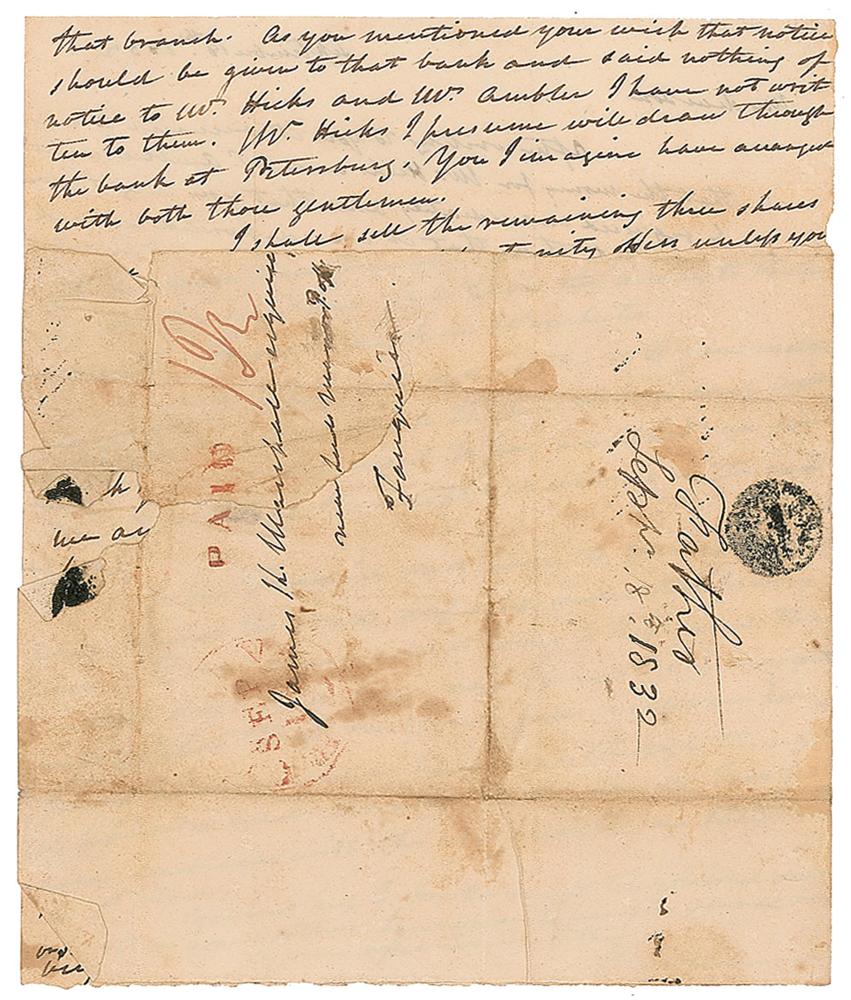 that branch. As you mentioned your wish that notice
should be given to that bank and said nothing of
notice to Mr. Hicks and Mr. Ambler I have not writ
ten to them. Mr. Hicks I presume will draw through
the bank at Petersburg. You I imagine have arranged
with both those gentlemen.
I shall sell the remaining three shares
unless you
PAID
James K. Marshall esquire
Fauquier
SEP
Father
Septr. 8th. 1832
me an